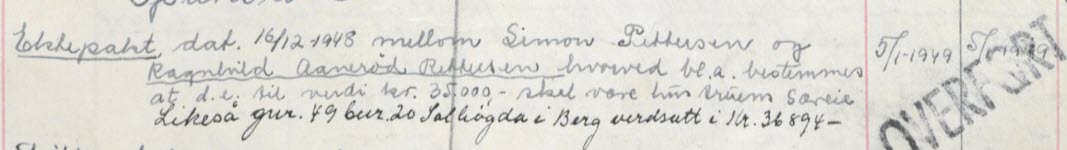 Ektepakt, dat. 16/12-1948 mellom Simon Pettersen og
Ragnhild Aanerød Pettersen hvorved bl.a. bestemmes
at d.e. til verdi kr. 35.000,- skal være hustruens særeie
Likeså gnr. 49 bnr. 20 Solhøgda i Berg verdsatt i Kr. 36894-
5/1-1949 5/1-1949
OVERFØRT